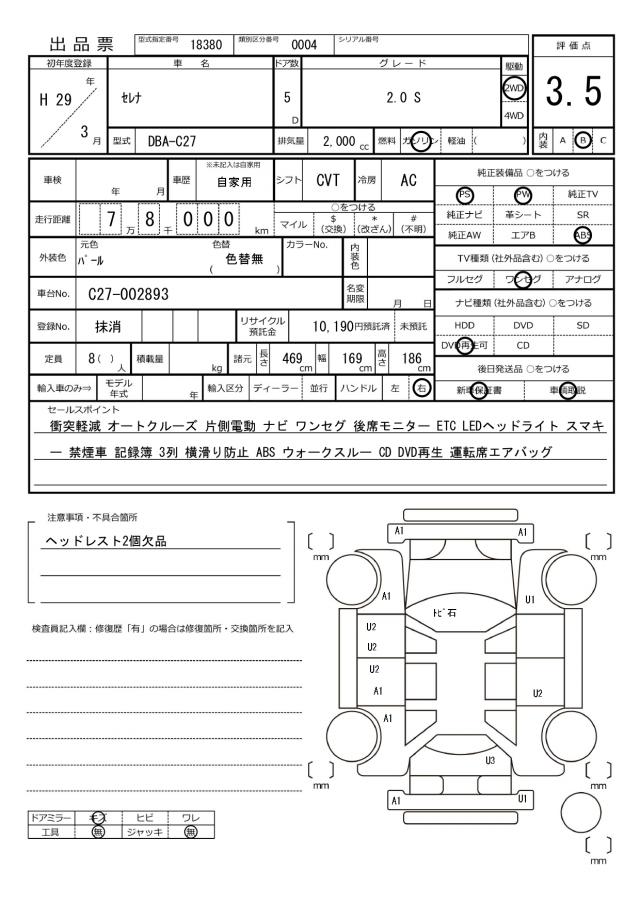 出品票 型式指定番号 18380 類別区分番号 0004 シリアル番号
評価点
3.5
内装 A B C
初年度登録 車名 ドア数 グレード 駆動
H 29 年 3 月
セレナ
5 D
2.0 S
2WD
4WD
型式 DBA-C27 排気量 2,000 cc 燃料 ガソリン 軽油 ( )
車検 年 月 車歴 ※未記入は自家用 自家用 シフト CVT 冷房 AC
走行距離 7 万 8 千 0 0 0 km
○をつける
マイル $ (交換) * (改ざん) # (不明)
外装色 元色 パール 色替 ( 色替無 ) カラーNo. 内装色
車台No. C27-002893 名変期限 月 日
登録No. 抹消 リサイクル預託金 10,190円預託済 未預託
定員 8( ) 人 積載量 kg 諸元 長さ 469 cm 幅 169 cm 高さ 186 cm
輸入車のみ⇒ モデル年式 年 輸入区分 ディーラー 並行 ハンドル 左 右
純正装備品 ○をつける
PS PW 純正TV
純正ナビ 革シート SR
純正AW エアB ABS
TV種類 (社外品含む) ○をつける
フルセグ ワンセグ アナログ
ナビ種類 (社外品含む) ○をつける
HDD DVD SD
DVD再生可 CD
後日発送品 ○をつける
新車保証書 車輌取説
セールスポイント
衝突軽減 オートクルーズ 片側電動 ナビ ワンセグ 後席モニター ETC LEDヘッドライト スマキ
ー 禁煙車 記録簿 3列 横滑り防止 ABS ウォークスルー CD DVD再生 運転席エアバッグ
注意事項・不具合箇所
ヘッドレスト2個欠品
検査員記入欄：修復歴「有」の場合は修復箇所・交換箇所を記入
ドアミラー キズ ヒビ ワレ
工具 無 ジャッキ 無
A1 A1
[ ] mm [ ] mm
A1 U1
トビ石
U2
U2
U2
A1 U2
A1
U3
[ ] mm [ ] mm
A1 U1
[ ] mm